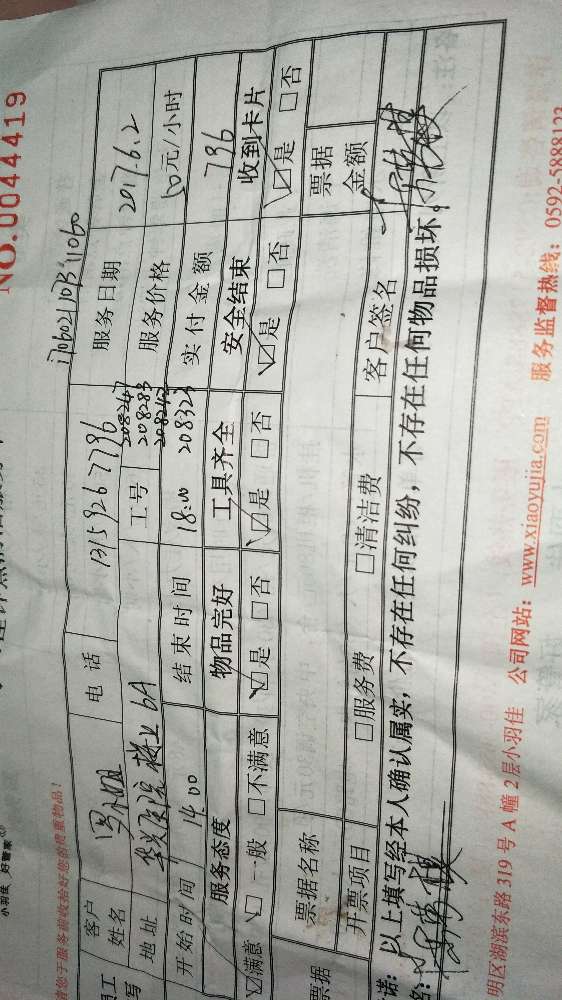 小羽佳 好管家
请您于服务前收拾好您的贵重物品!
NO.0044419
客户姓名 罗小姐 电话 13159267796 服务日期 2017.6.2
地址 6A 工号 208283 208323 服务价格 50元/小时
开始时间 14:00 结束时间 18:00 实付金额 796
服务态度 物品完好 工具齐全 安全结束 收到卡片
☑满意 □一般 □不满意 ☑是 □否 ☑是 □否 ☑是 □否 ☑是 □否
票据 票据名称 票据金额
开票项目 □服务费 □清洁费 客户签名
诺:以上填写经本人确认属实,不存在任何纠纷,不存在任何物品损坏。
名:
明区湖滨东路 319 号 A 幢 2 层小羽佳 公司网站:www.xiaoyujia.com 服务监督热线:0592-5888123